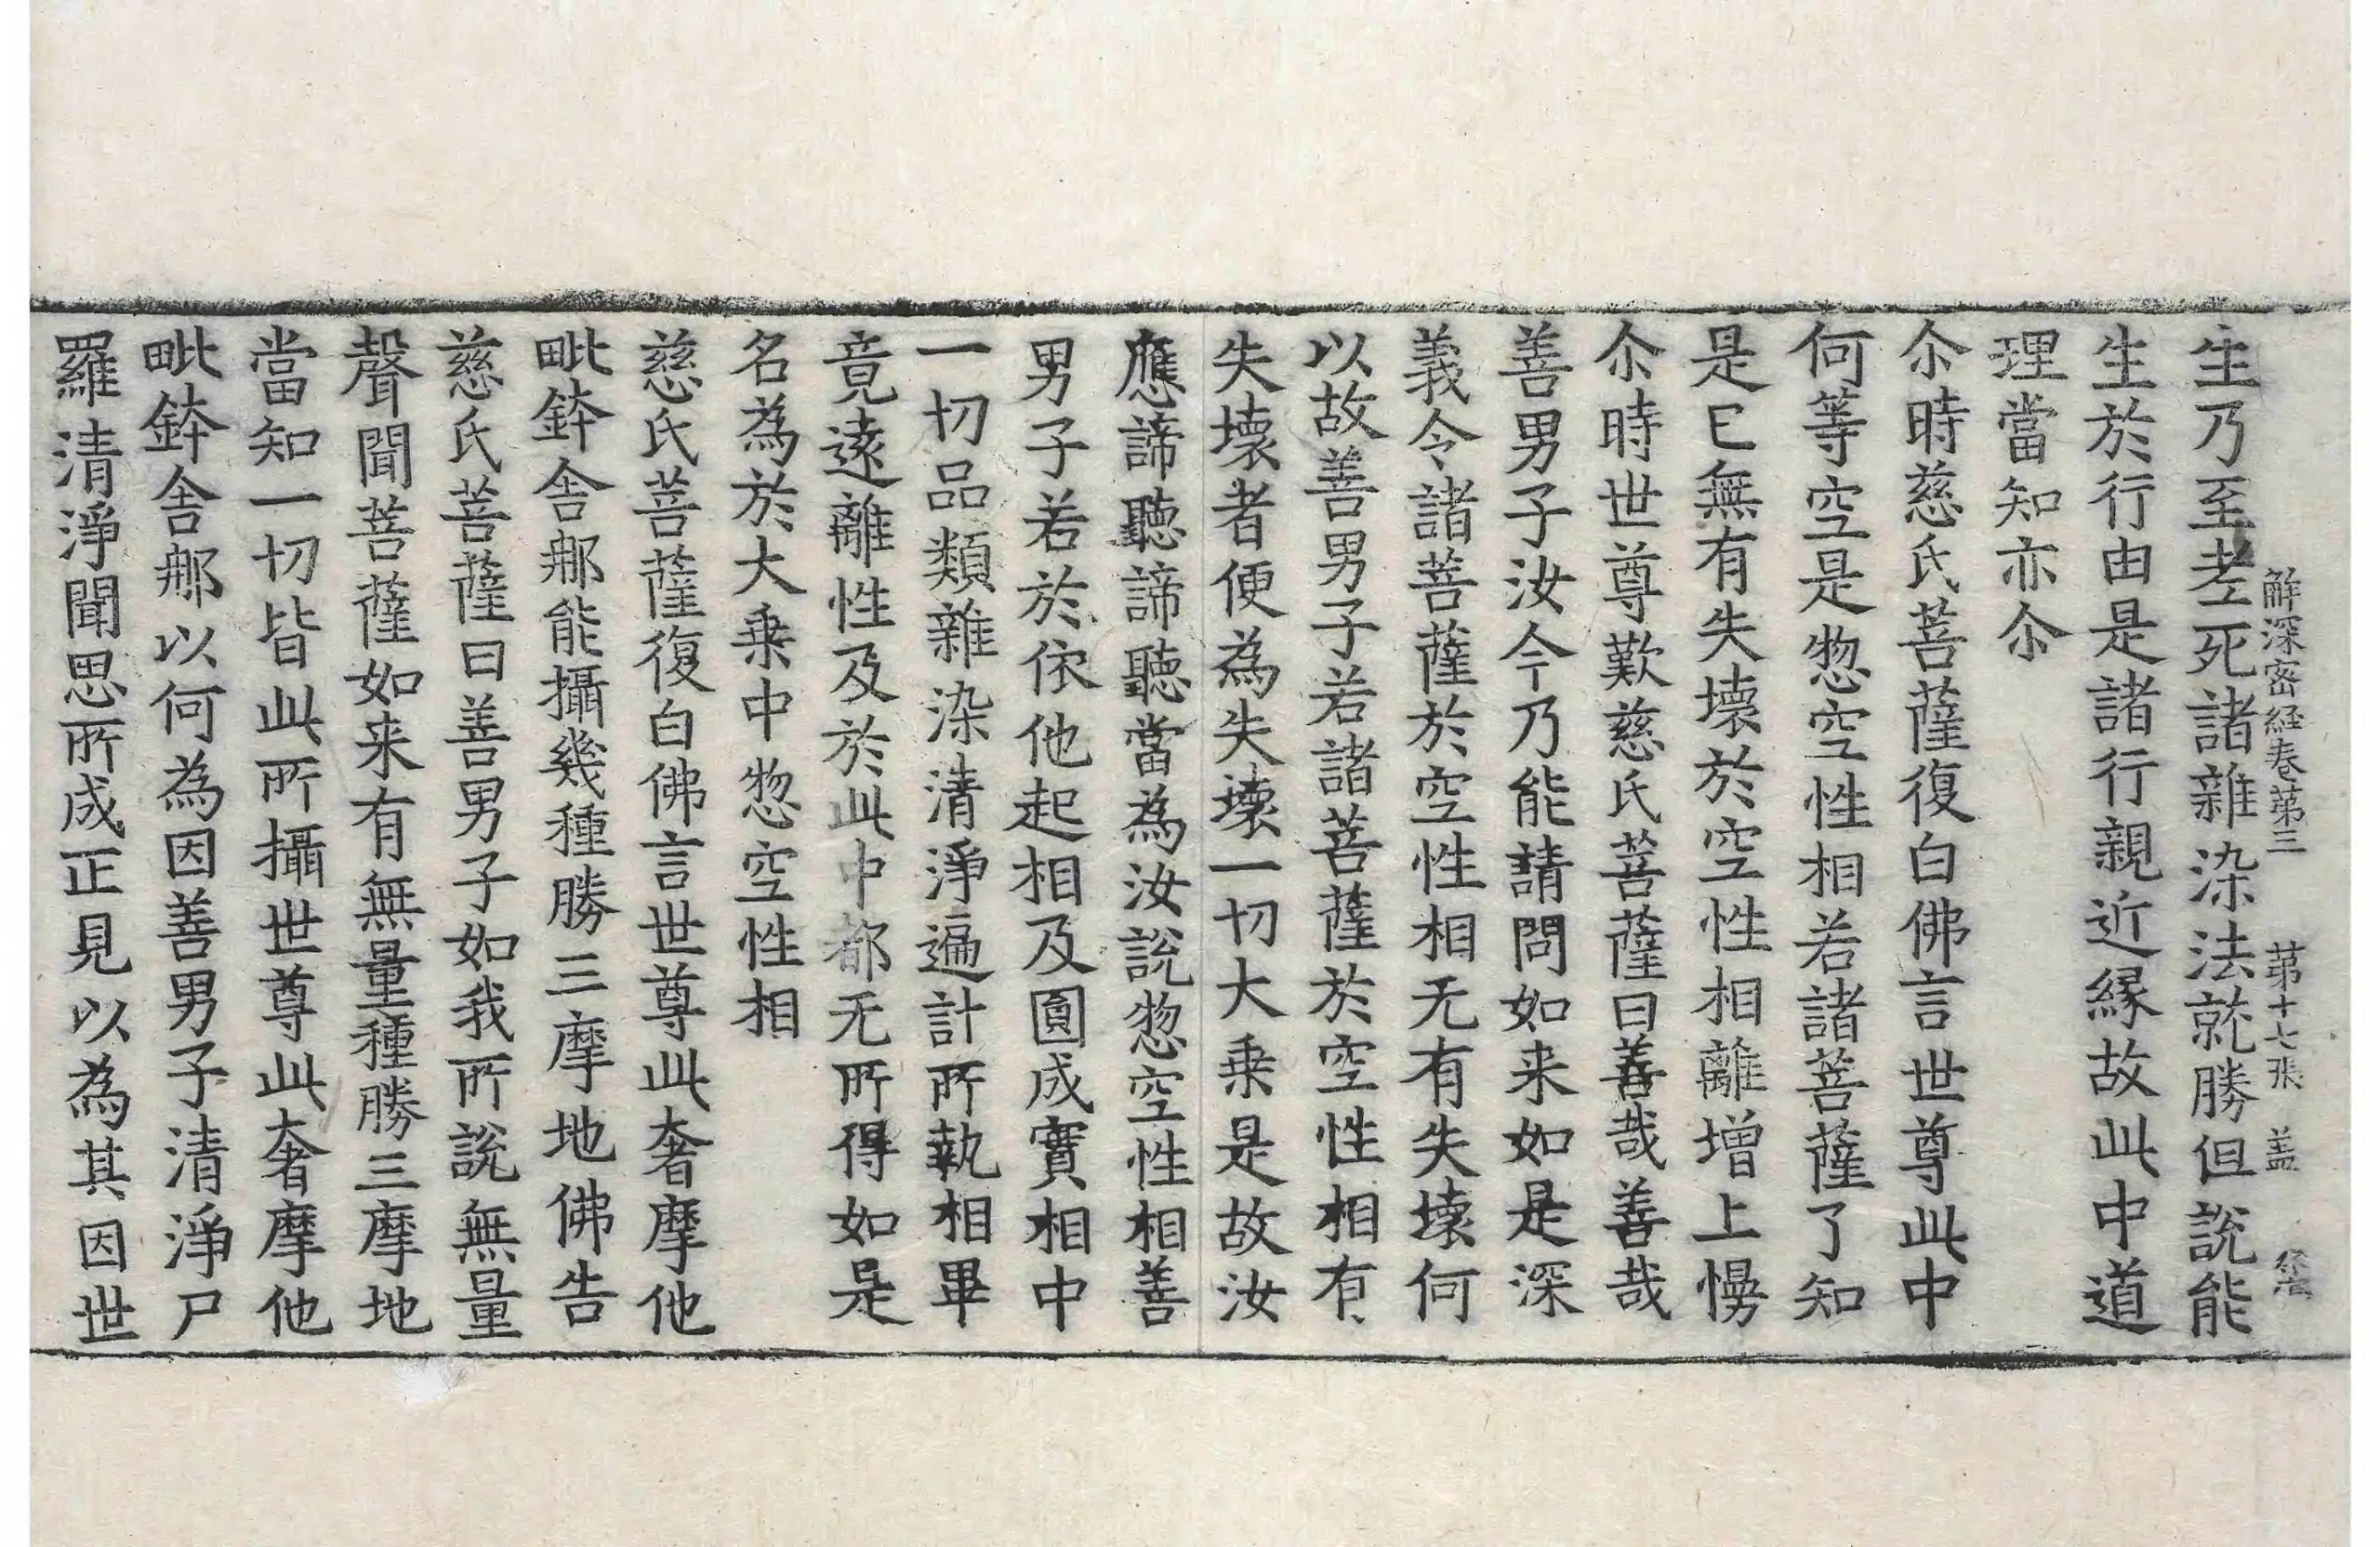 解深密経卷苐三 苐十七張 盖
生乃至老死諸雜染法就勝但說能
生於行由是諸行親近縁故此中道
理當知亦尒
尒時慈氏菩薩復白佛言世尊此中
何等空是惣空性相若諸菩薩了知
是已無有失壞於空性相離增上慢
尒時世尊歎慈氏菩薩曰善哉善哉
善男子汝今乃能請問如来如是深
義令諸菩薩於空性相无有失壞何
以故善男子若諸菩薩於空性相有
失壞者便為失壞一切大乗是故汝
應諦聽諦聽當為汝說惣空性相善
男子若於依他起相及圓成實相中
一切品類雜染清淨遍計所執相畢
竟遠離性及於此中都无所得如是
名為於大乗中惣空性相
慈氏菩薩復白佛言世尊此奢摩他
毗鉢舍那能攝幾種勝三摩地佛告
慈氏菩薩曰善男子如我所說無量
聲聞菩薩如来有無量種勝三摩地
當知一切皆此所攝世尊此奢摩他
毗鉢舍那以何為因善男子清淨尸
羅清淨聞思所成正見以為其因世